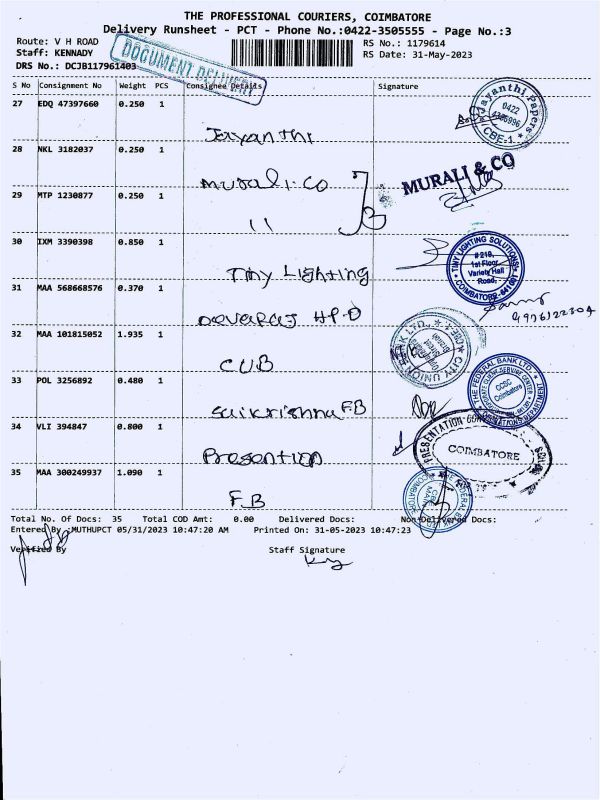 THE PROFESSIONAL COURIERS, COIMBATORE
Delivery Runsheet - PCT - Phone No.:0422-3505555 - Page No.:3
Route: V H ROAD
Staff: KENNADY
DRS No.: DCJB117961403
RS No.: 1179614
RS Date: 31-May-2023
DOCUMENT DELIVERY
S No Consignment No Weight PCS Consignee Details Signature
27 EDQ 47397660 0.250 1
Jayanthi
Jayanthi Papers
0422
CBE-1
28 NKL 3182037 0.250 1
Murali.co
MURALI & CO
29 MTP 1230877 0.250 1
11
30 IXM 3390398 0.850 1
Tiny Lighting
TINY LIGHTING SOLUTIONS
#218,
1st Floor,
Variety Hall
Road,
COIMBATORE-641001
31 MAA 568668576 0.370 1
Devaraj H.P.O
32 MAA 101815052 1.935 1
CUB
CITY UNION BANK LTD.,
33 POL 3256892 0.480 1
Saikrishna FB
THE FEDERAL BANK LTD.
CCSC
Coimbatore
34 VLI 394847 0.800 1
Presention
PRESENTATION CONVENT
SCHOOL
COIMBATORE
35 MAA 300249937 1.090 1
FB
Total No. Of Docs: 35 Total COD Amt: 0.00 Delivered Docs: Non-Delivered Docs:
Entered By :MUTHUPCT 05/31/2023 10:47:20 AM Printed On: 31-05-2023 10:47:23
Verified By Staff Signature